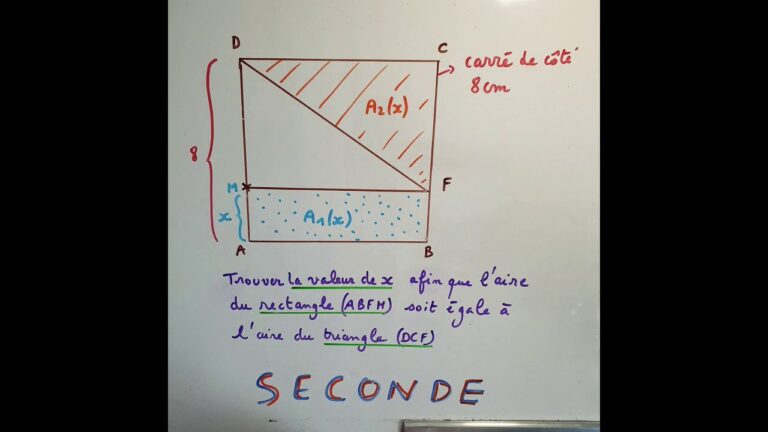 D
C
carré de côté
8cm
8
A2(x)
M
F
x
A1(x)
A
B
Trouver la valeur de x afin que l'aire
du rectangle (ABFM) soit égale à
l'aire du triangle (DCF)
SECONDE